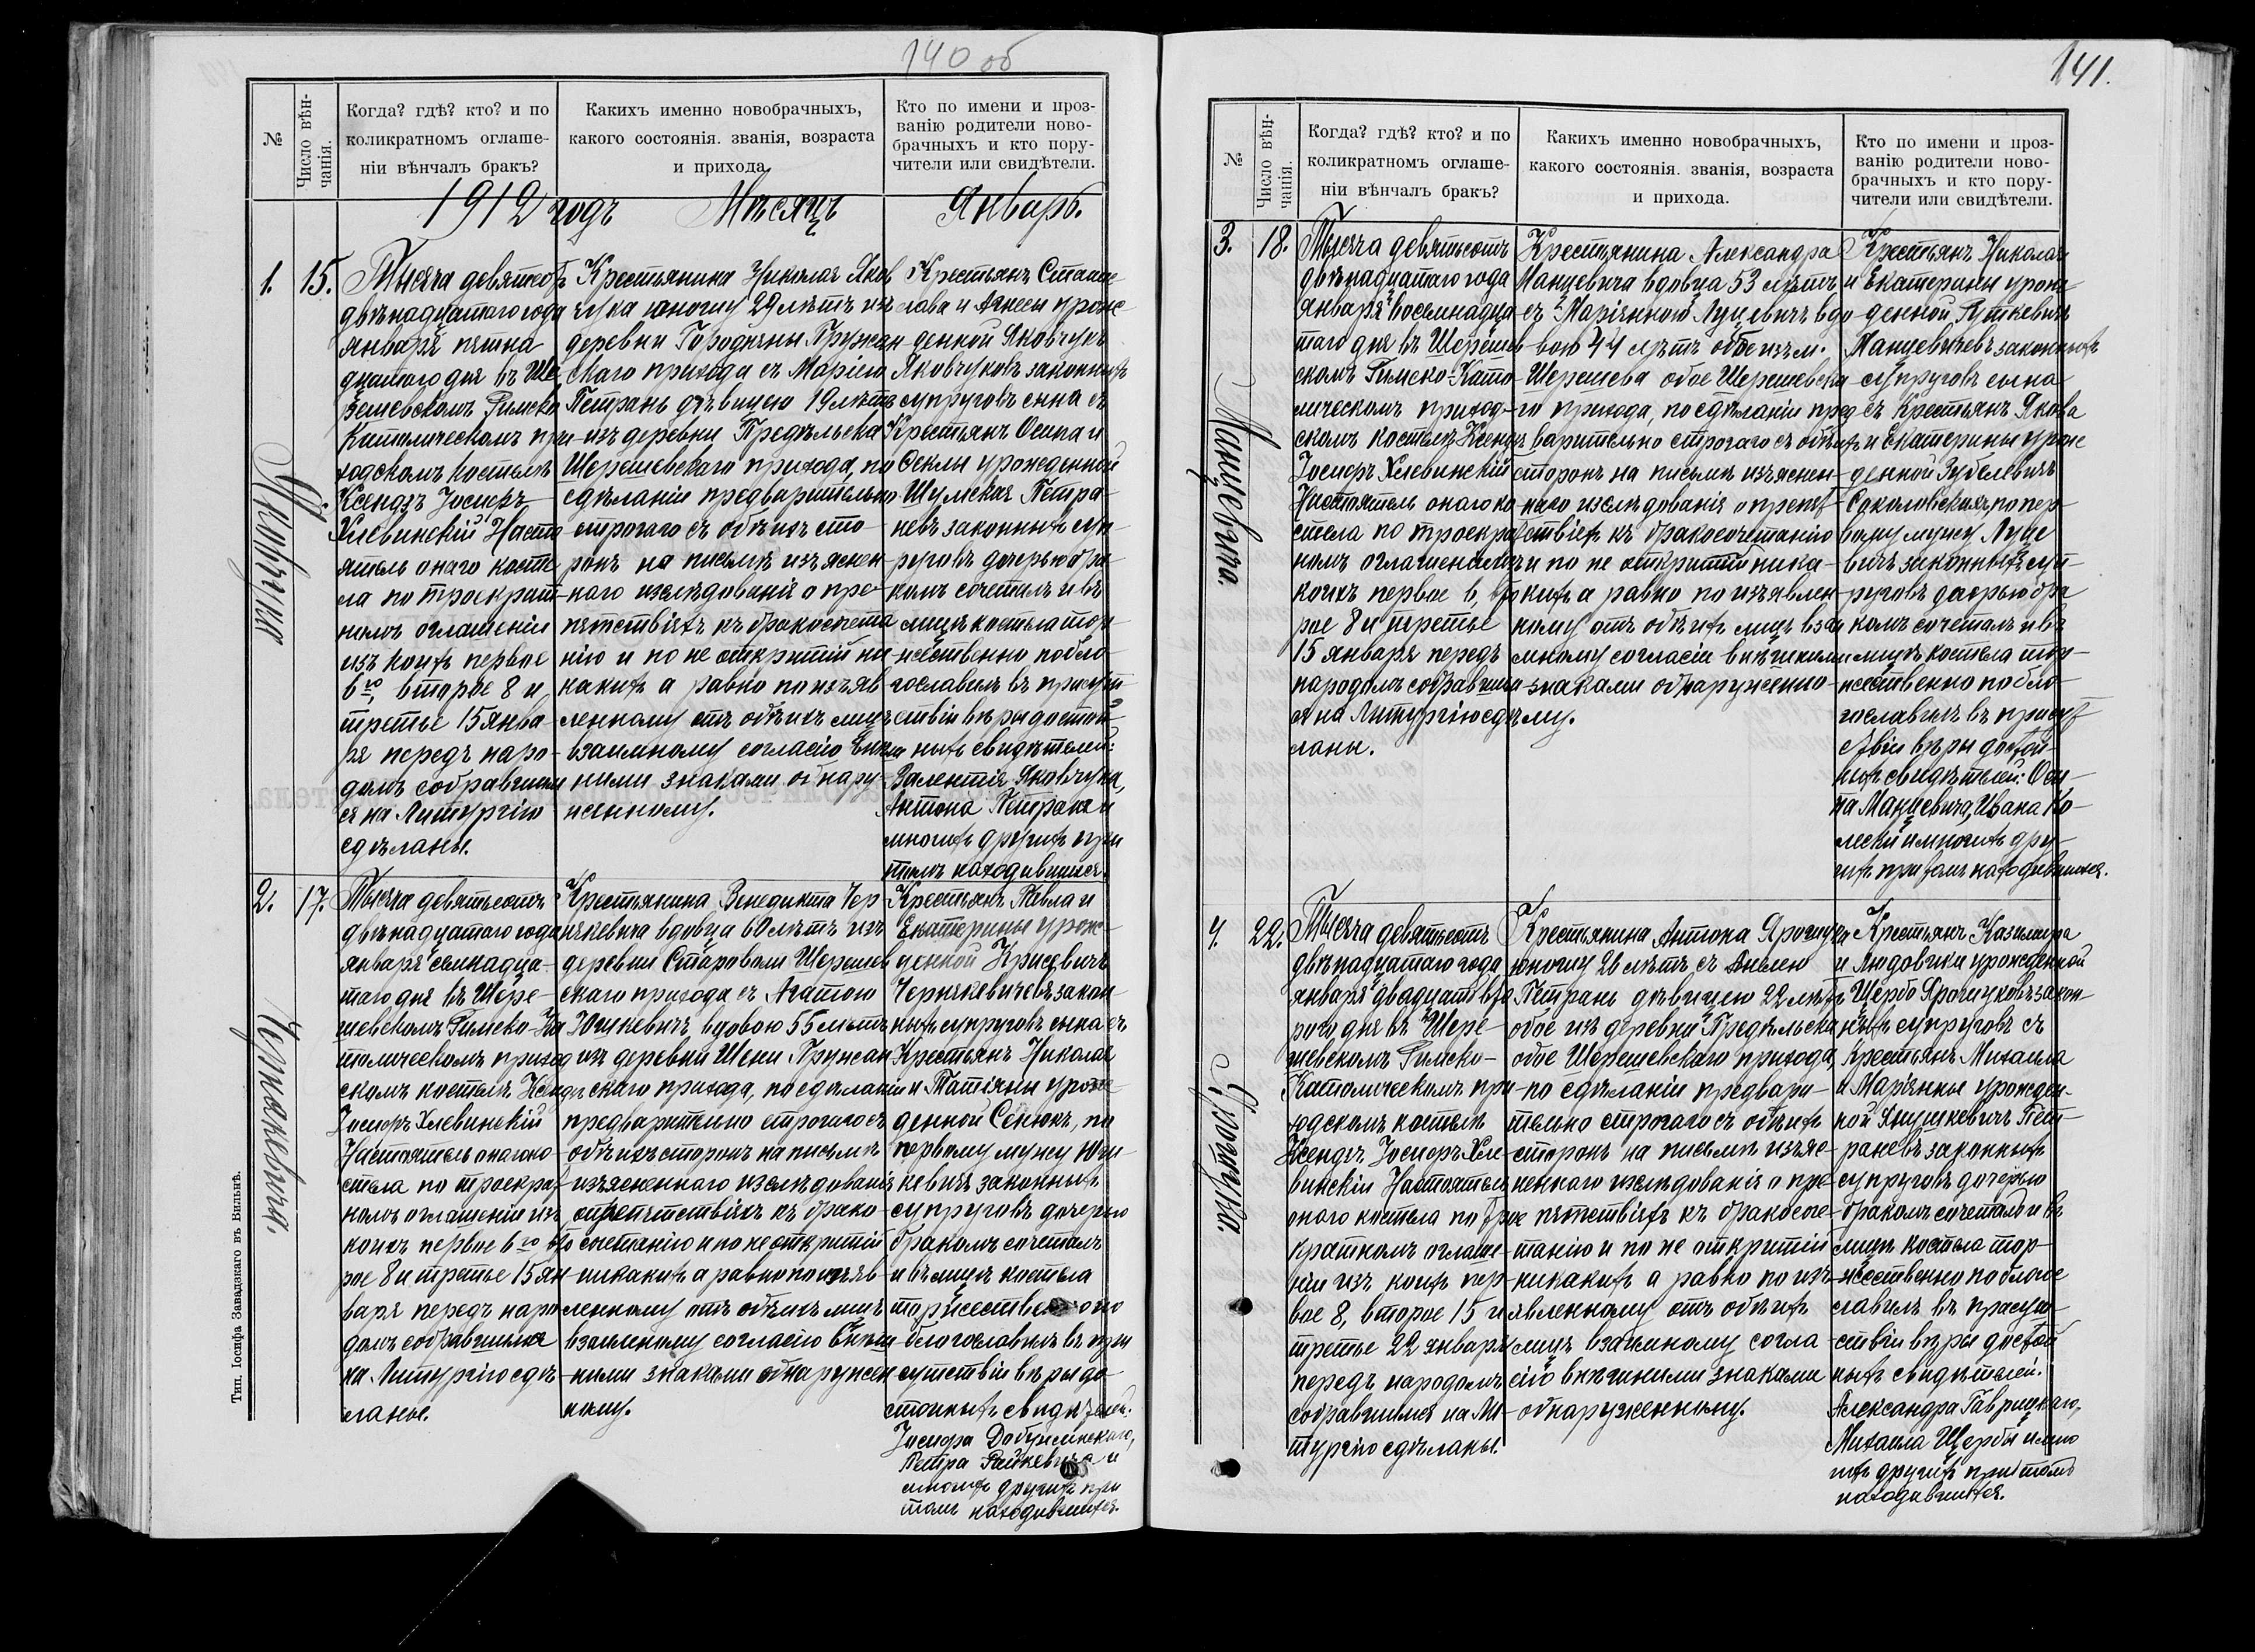 140 об
№
Число вѣн-
чанія.
Когда? гдѣ? кто? и по
коликратномъ оглаше-
ніи вѣнчалъ бракъ?
Какихъ именно новобрачныхъ,
какого состоянія. званія, возраста
и прихода
Кто по имени и проз-
ванію родители ново-
брачныхъ и кто пору-
чители или свидѣтели.
1912 годъ Мѣсяцъ Январь.
1.
15.
Тысяча девятсот
двѣнадцатаго года
января пятна
дцатого дня въ Ше
решевскомъ Римско
Католическомъ при-
ходскомъ костелѣ
Ксендзъ Іосифъ
Хлевинскій Насто
ятель онаго косте
ла по троекрат-
номъ оглашеніи
изъ коихъ первое
6го, второе 8 и
третье 15 янва-
ря передъ наро-
домъ собравшим
ся на Литургію
сдѣланы.
Крестьянина Николая Яков
чука юношу 22 лѣтъ изъ
деревни Городняны Пружан
скаго прихода съ Маріею
Петрань дѣвицею 19 лѣтъ
изъ деревни Предѣльска
Шерешевскаго прихода, по
сдѣланіи предварительно
строгаго съ обѣихъ сто-
ронъ на письмѣ изъяснен-
наго изслѣдованія о пре-
пятствіяхъ къ бракосочета
нію и по не открытіи ни
какихъ а равно по изъяв
ленному отъ обѣихъ лицъ
взаимному согласію внѣш
ними знаками обнару-
женному.
Крестьянъ Станис
лава и Агнеси урож
денной Яковчукъ
Яковчуковъ законныхъ
супруговъ сына съ
Крестьянъ Осипа и
Феклы урожденной
Шумская Петра-
невъ законныхъ суп-
руговъ дочерью бра-
комъ сочеталъ и въ
лицѣ костела тор-
жественно побло-
гословилъ въ присут
ствіи вѣры достой-
ныхъ свидѣтелей:
Валентія Яковчука,
Антона Петраня и
многихъ другихъ при
томъ находившихся.
Яковчука
2.
17.
Тысяча девятьсотъ
двѣнадцатаго года
января семнадца-
таго дня въ Шере-
шевскомъ Римско-Ка
толическомъ приход
скомъ костелѣ Ксендзъ
Іосифъ Хлевинскій
Настоятель онаго ко-
стела по троекрат-
номъ оглашеніи изъ
коихъ первое 6го, вто
рое 8 и третье 15 ян-
варя передъ наро
домъ собравшимся
на Литургію сдѣ-
ланы.
Крестьянина Венедикта Чер
някевича вдовца 60 лѣтъ изъ
деревни Старовали Шерешев
скаго прихода съ Агатою
Юшкевичъ вдовою 55 лѣтъ
изъ деревни Шени Пружан
скаго прихода, по сдѣланіи
предварительно строгаго съ
обѣихъ сторонъ на письмѣ
изъясненнаго изслѣдованія
о препятствіяхъ къ брако-
сочетанію и по не открытіи
никакихъ а равно по изъяв-
ленному отъ обѣихъ лицъ
взаимному согласію внѣш
ними знаками обнаружен
ному.
Крестьянъ Павла и
Екатерины урож-
денной Крисевичъ
Чернякевичевъ закон
ныхъ супруговъ сына съ
Крестьянъ Николая
и Татіяны урож-
денной Сенюкъ, по
первому мужу Юш-
кевичъ законныхъ
супруговъ дочерью
бракомъ сочеталъ
и въ лицѣ костела
торжественно по
благословилъ въ при
сутствіи вѣры до-
стойныхъ свидѣтелей:
Іосифа Добужинскаго,
Петра Райкевича и
многихъ другихъ при
томъ находившихся.
Чернякевича.
Тип. Іосифа Завадзкаго въ Вильнѣ.
141.
№
Число вѣн-
чанія.
Когда? гдѣ? кто? и по
коликратномъ оглаше-
ніи вѣнчалъ бракъ?
Какихъ именно новобрачныхъ,
какого состоянія. званія, возраста
и прихода.
Кто по имени и проз-
ванію родители ново-
брачныхъ и кто пору-
чители или свидѣтели.
3.
18.
Тысяча девятьсотъ
двѣнадцатаго года
января восемнадца
таго дня въ Шерешев
скомъ Римско-Като-
лическомъ приход-
скомъ костелѣ Ксендзъ
Іосифъ Хлевинскій
Настоятель онаго ко
стела по троекрат
номъ оглашеніи изъ
коихъ первое 6, вто
рое 8 и третье
15 января передъ
народомъ собравшим
ся на Литургію сдѣ
ланы.
Крестьянина Александра
Манцевича вдовца 53 лѣтъ
съ Маріянною Луцевичъ вдо
вою 44 лѣтъ обое изъ м.
Шерешева обое Шерешевска-
го прихода, по сдѣланіи пред
варительно строгаго съ обѣихъ
сторонъ на письмѣ изъяснен-
наго изслѣдованія о препят-
ствіяхъ къ бракосочетанію
и по не открытіи ника-
кихъ а равно по изъявлен-
ному отъ обѣихъ лицъ вза
имному согласію внѣшними
знаками обнаруженно-
му.
Крестьянъ Николая
и Екатерины урож-
денной Луткевичъ
Манцевичевъ законныхъ
супруговъ сына
съ Крестьянъ Якова
и Екатерины урож
денной Зубелевичъ
Соколовская, по пер-
вому мужу Луце
вичъ законныхъ суп-
руговъ дочерью бра
комъ сочеталъ и въ
лицѣ костела тор-
жественно побло-
гословилъ въ присут
ствіи вѣры достой-
ныхъ свидѣтелей: Оси-
па Манцевича, Ивана Ко-
лески и многихъ дру-
гихъ притомъ находившихся.
Манцевича
4.
22.
Тысяча девятьсотъ
двѣнадцатаго года
января двадцать вто
раго дня въ Шере-
шевскомъ Римско-
Католическомъ при-
ходскомъ костелѣ
Ксендзъ Іосифъ Хле-
винскій Настоятель
онаго костела по трое
кратномъ оглаше-
ніи изъ коихъ пер-
вое 8, второе 15 и
третье 22 января
передъ народомъ
собравшимся на Ли-
тургію сдѣланы.
Крестьянина Антона Ярошука
юношу 26 лѣтъ съ Анелею
Петрань дѣвицею 22 лѣтъ
обое изъ деревни Предѣльска
обое Шерешевскаго прихода,
по сдѣланіи предвари-
тельно строгаго съ обѣихъ
сторонъ на письмѣ изъяс-
неннаго изслѣдованія о пре-
пятствіяхъ къ бракосоче-
танію и по не открытіи
никакихъ а равно по изъ-
явленному отъ обѣихъ
лицъ взаимному согла
сію внѣшними знаками
обнаруженному.
Крестьянъ Казимира
и Людовики урожденной
Щербо Ярошуковъ закон-
ныхъ супруговъ съ
Крестьянъ Михаила
и Маріянны урожден-
ной Янушкевичъ Пет-
раневъ законныхъ
супруговъ дочерью
бракомъ сочеталъ и въ
лицѣ костела тор-
жественно поблаго
славилъ въ присут-
ствіи вѣры достой
ныхъ свидѣтелей:
Александра Гаврицкаго,
Михаила Щербы и мно
гихъ другихъ притомъ
находившихся.
Ярошука